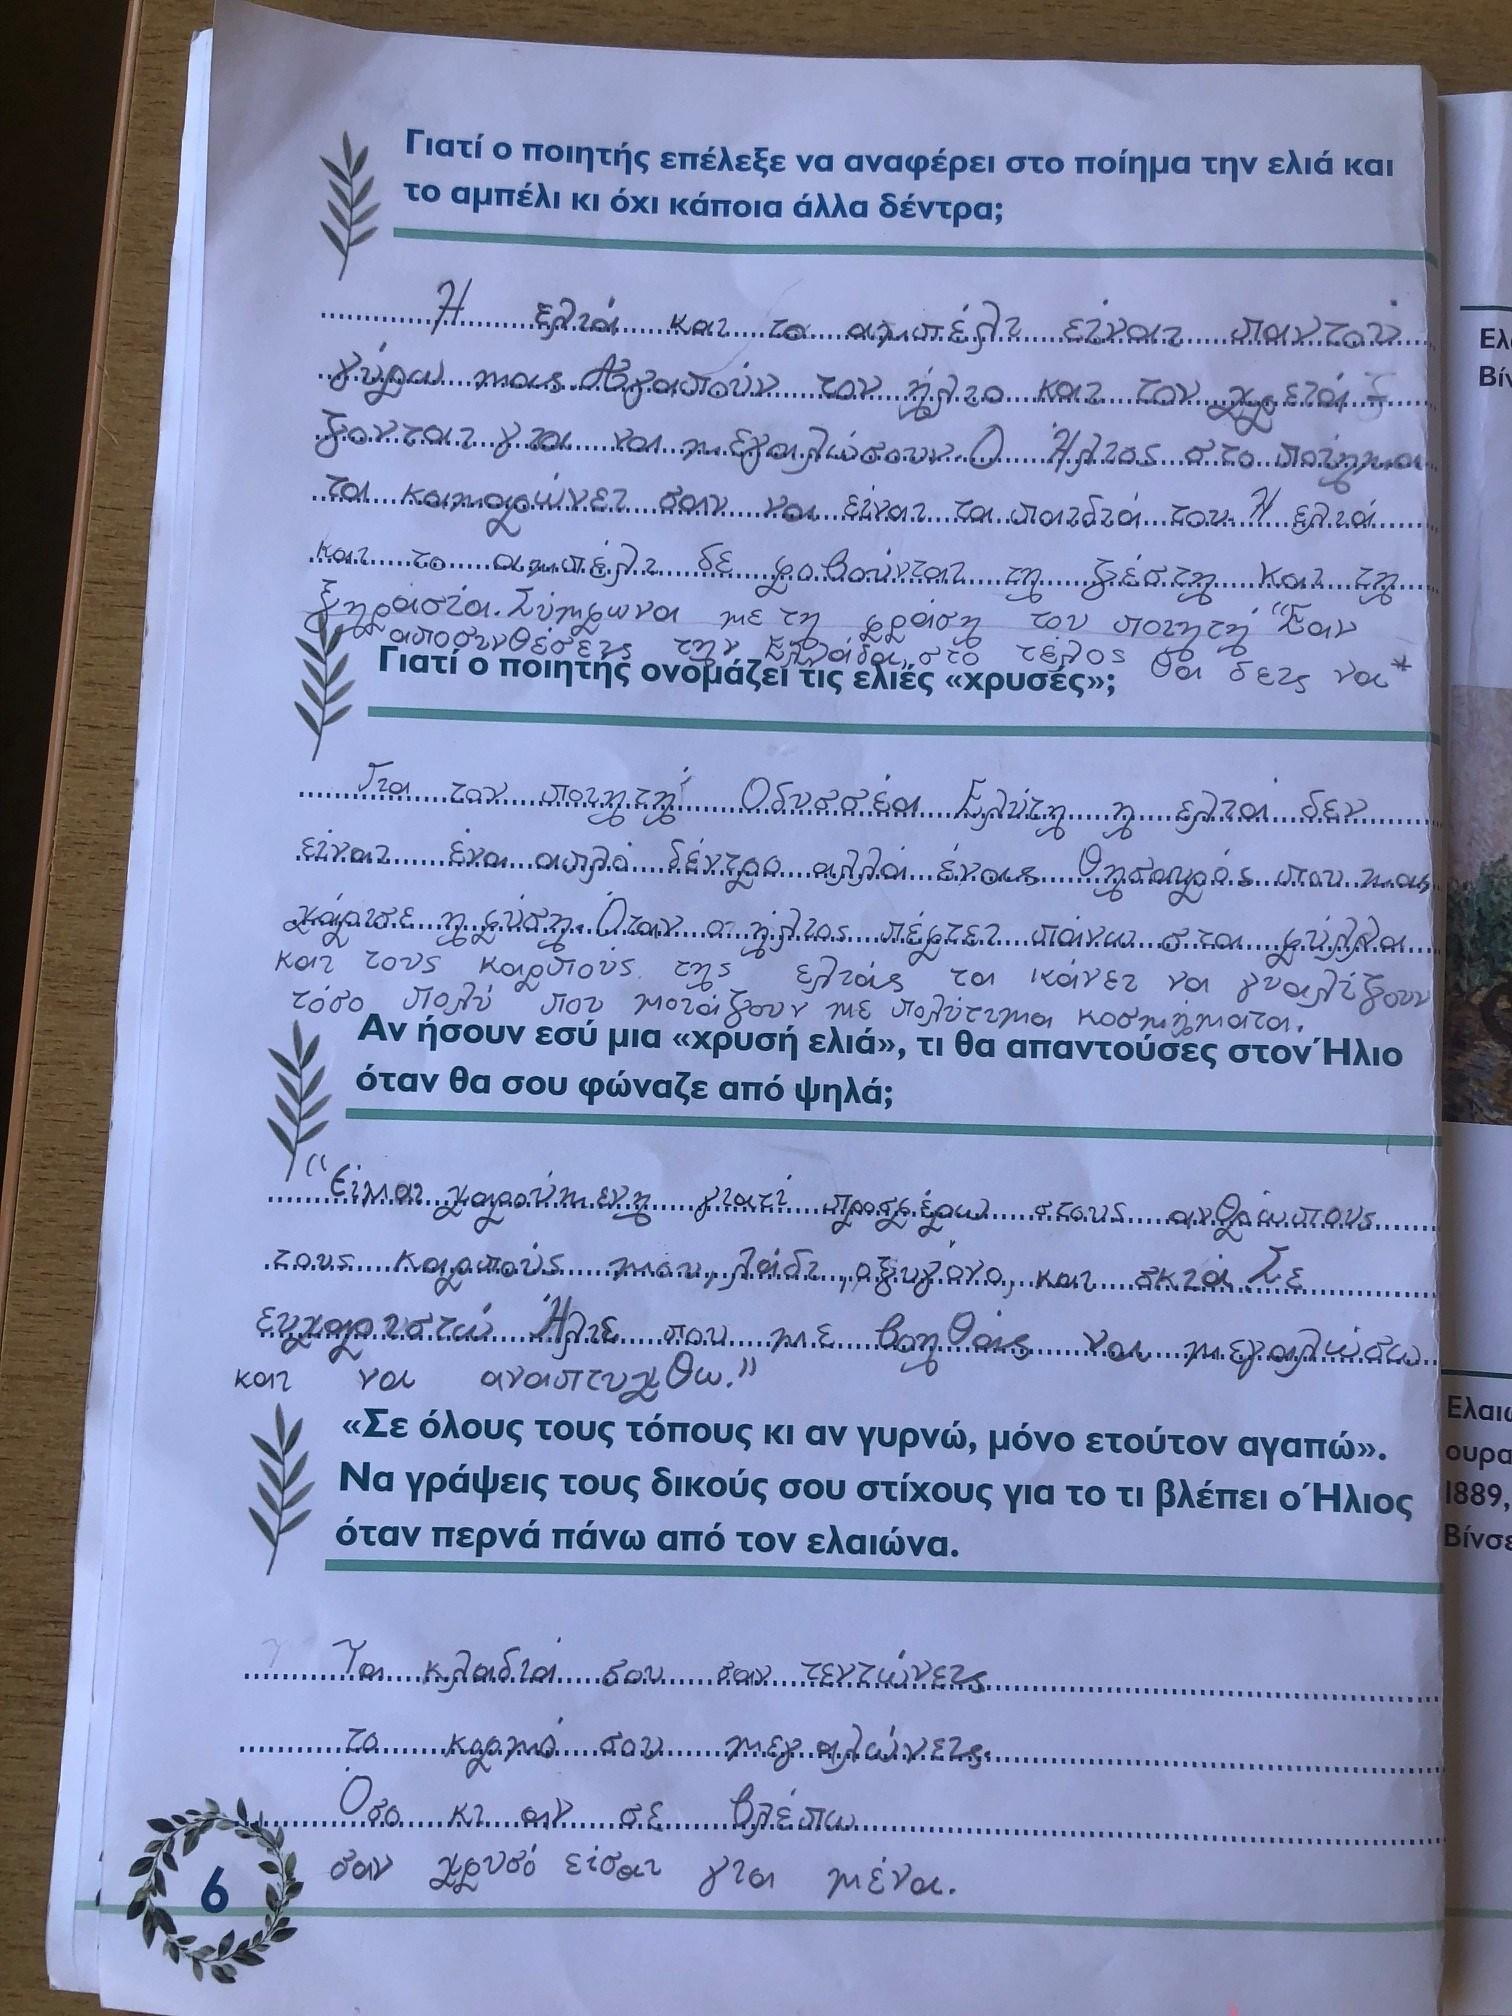 Γιατί ο ποιητής επέλεξε να αναφέρει στο ποίημα την ελιά και
το αμπέλι κι όχι κάποια άλλα δέντρα;
Η ελιά και το αμπέλι είναι παντού
γύρω μας. Αγαπούν τον ήλιο και τον χρειά
ζονται για να μεγαλώσουν. Ο Ήλιος στο ποίημα
τα καμαρώνει σαν να είναι τα παιδιά του. Η ελιά
και το αμπέλι δε φοβούνται τη ζέστη και τη
ξηρασία. Σύμφωνα με τη φράση του ποιητή "Εαν
αποσυνθέσεις την Ελλάδα, στο τέλος θα δεις να*
Γιατί ο ποιητής ονομάζει τις ελιές «χρυσές»;
Για τον ποιητή Οδυσσέα Ελύτη η ελιά δεν
είναι ένα απλό δέντρο αλλά ένας θησαυρός που μας
χάρισε η φύση. Όταν ο ήλιος πέφτει πάνω στα φύλλα
και τους καρπούς της ελιάς τα κάνει να γυαλίζουν
τόσο πολύ που μοιάζουν με πολύτιμα κοσμήματα.
Αν ήσουν εσύ μια «χρυσή ελιά», τι θα απαντούσες στον Ήλιο
όταν θα σου φώναζε από ψηλά;
"Είμαι χαρούμενη γιατί προσφέρω στους ανθρώπους
τους καρπούς μου, λάδι, οξυγόνο, και σκιά. Σε
ευχαριστώ Ήλιε που με βοηθάς να μεγαλώσω
και να αναπτυχθω."
«Σε όλους τους τόπους κι αν γυρνώ, μόνο ετούτον αγαπώ».
Να γράψεις τους δικούς σου στίχους για το τι βλέπει ο Ήλιος
όταν περνά πάνω από τον ελαιώνα.
Τα κλαδιά σου σαν τεντώνεις
το κορμό σου μεγαλώνεις.
Όσο κι αν σε βλέπω
σαν χρυσό είσαι για μένα.
6
Ελα
Βίν
Ελαιώ
ουρα
1889,
Βίνσε